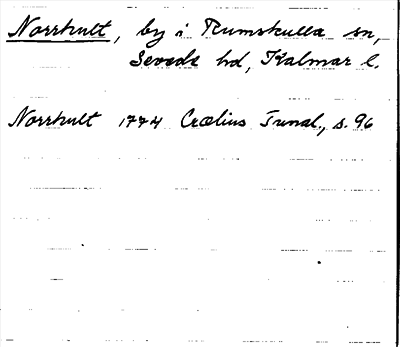 Norrhult, by i Rumskulla sn,
Sevede hd, Kalmar l.
Norrhult 1774 Crælius Tunal., s. 96